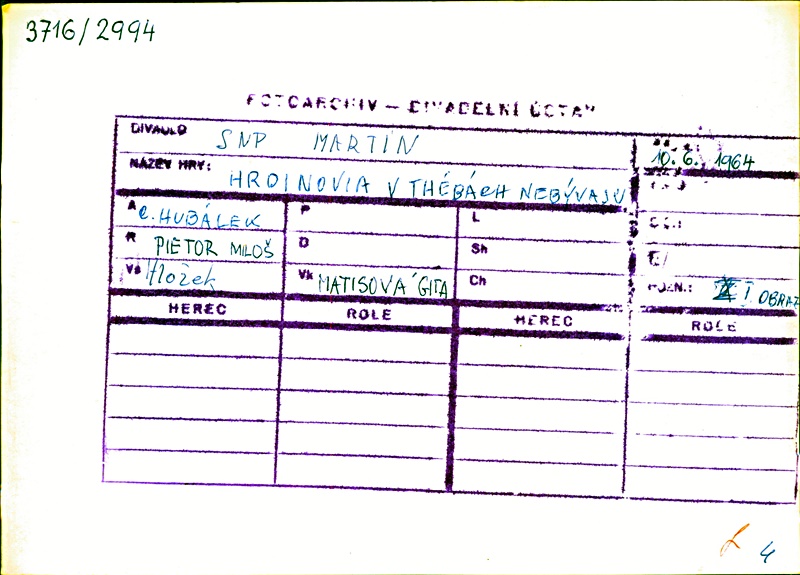 3716/2994
FOTOARCHIV — DIVADELNÍ ÚSTAV
DIVADLO SNP MARTIN
10. 6. 1964
NÁZEV HRY: HRDINOVIA V THÉBÁCH NEBÝVAJÚ
A C. HUBÁLEK P L
R PIETOR MILOŠ D Sh
Vs Hložek Vk MATISOVÁ GITA Ch POZN.: I. OBRAZ
HEREC ROLE HEREC ROLE
4